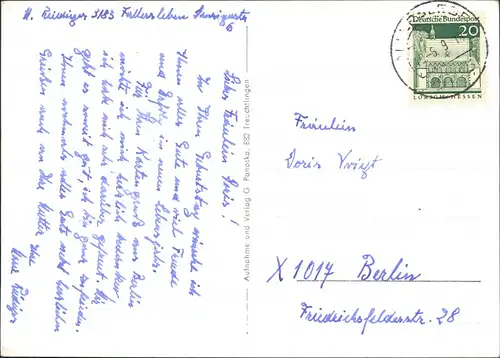 H. Rüdiger 3183 Fallersleben Danzigerstr
6
Liebes Fräulein Doris!
Zu Ihrem Geburtstag wünsche ich
Ihnen alles Gute und viel Freude
und Erfolg im neuen Lebensjahr.
Für Ihren Kartengruß aus Berlin
möchte ich mich herzlich bedanken
ich habe mich sehr darüber gefreut. Mir
geht es soweit gut, ich bin ganz zufrieden.
Ihnen nochmals alles Gute nebst herzlichen
Grüßen auch an Ihre Mutter Ihre
Rüdiger
Aufnahme und Verlag G. Panoska, 882 Treuchtlingen
Deutsche Bundespost
20
LORSCH/HESSEN
Fräulein
Doris Voigt
X 1017 Berlin
Friedrichsfelderstr. 28